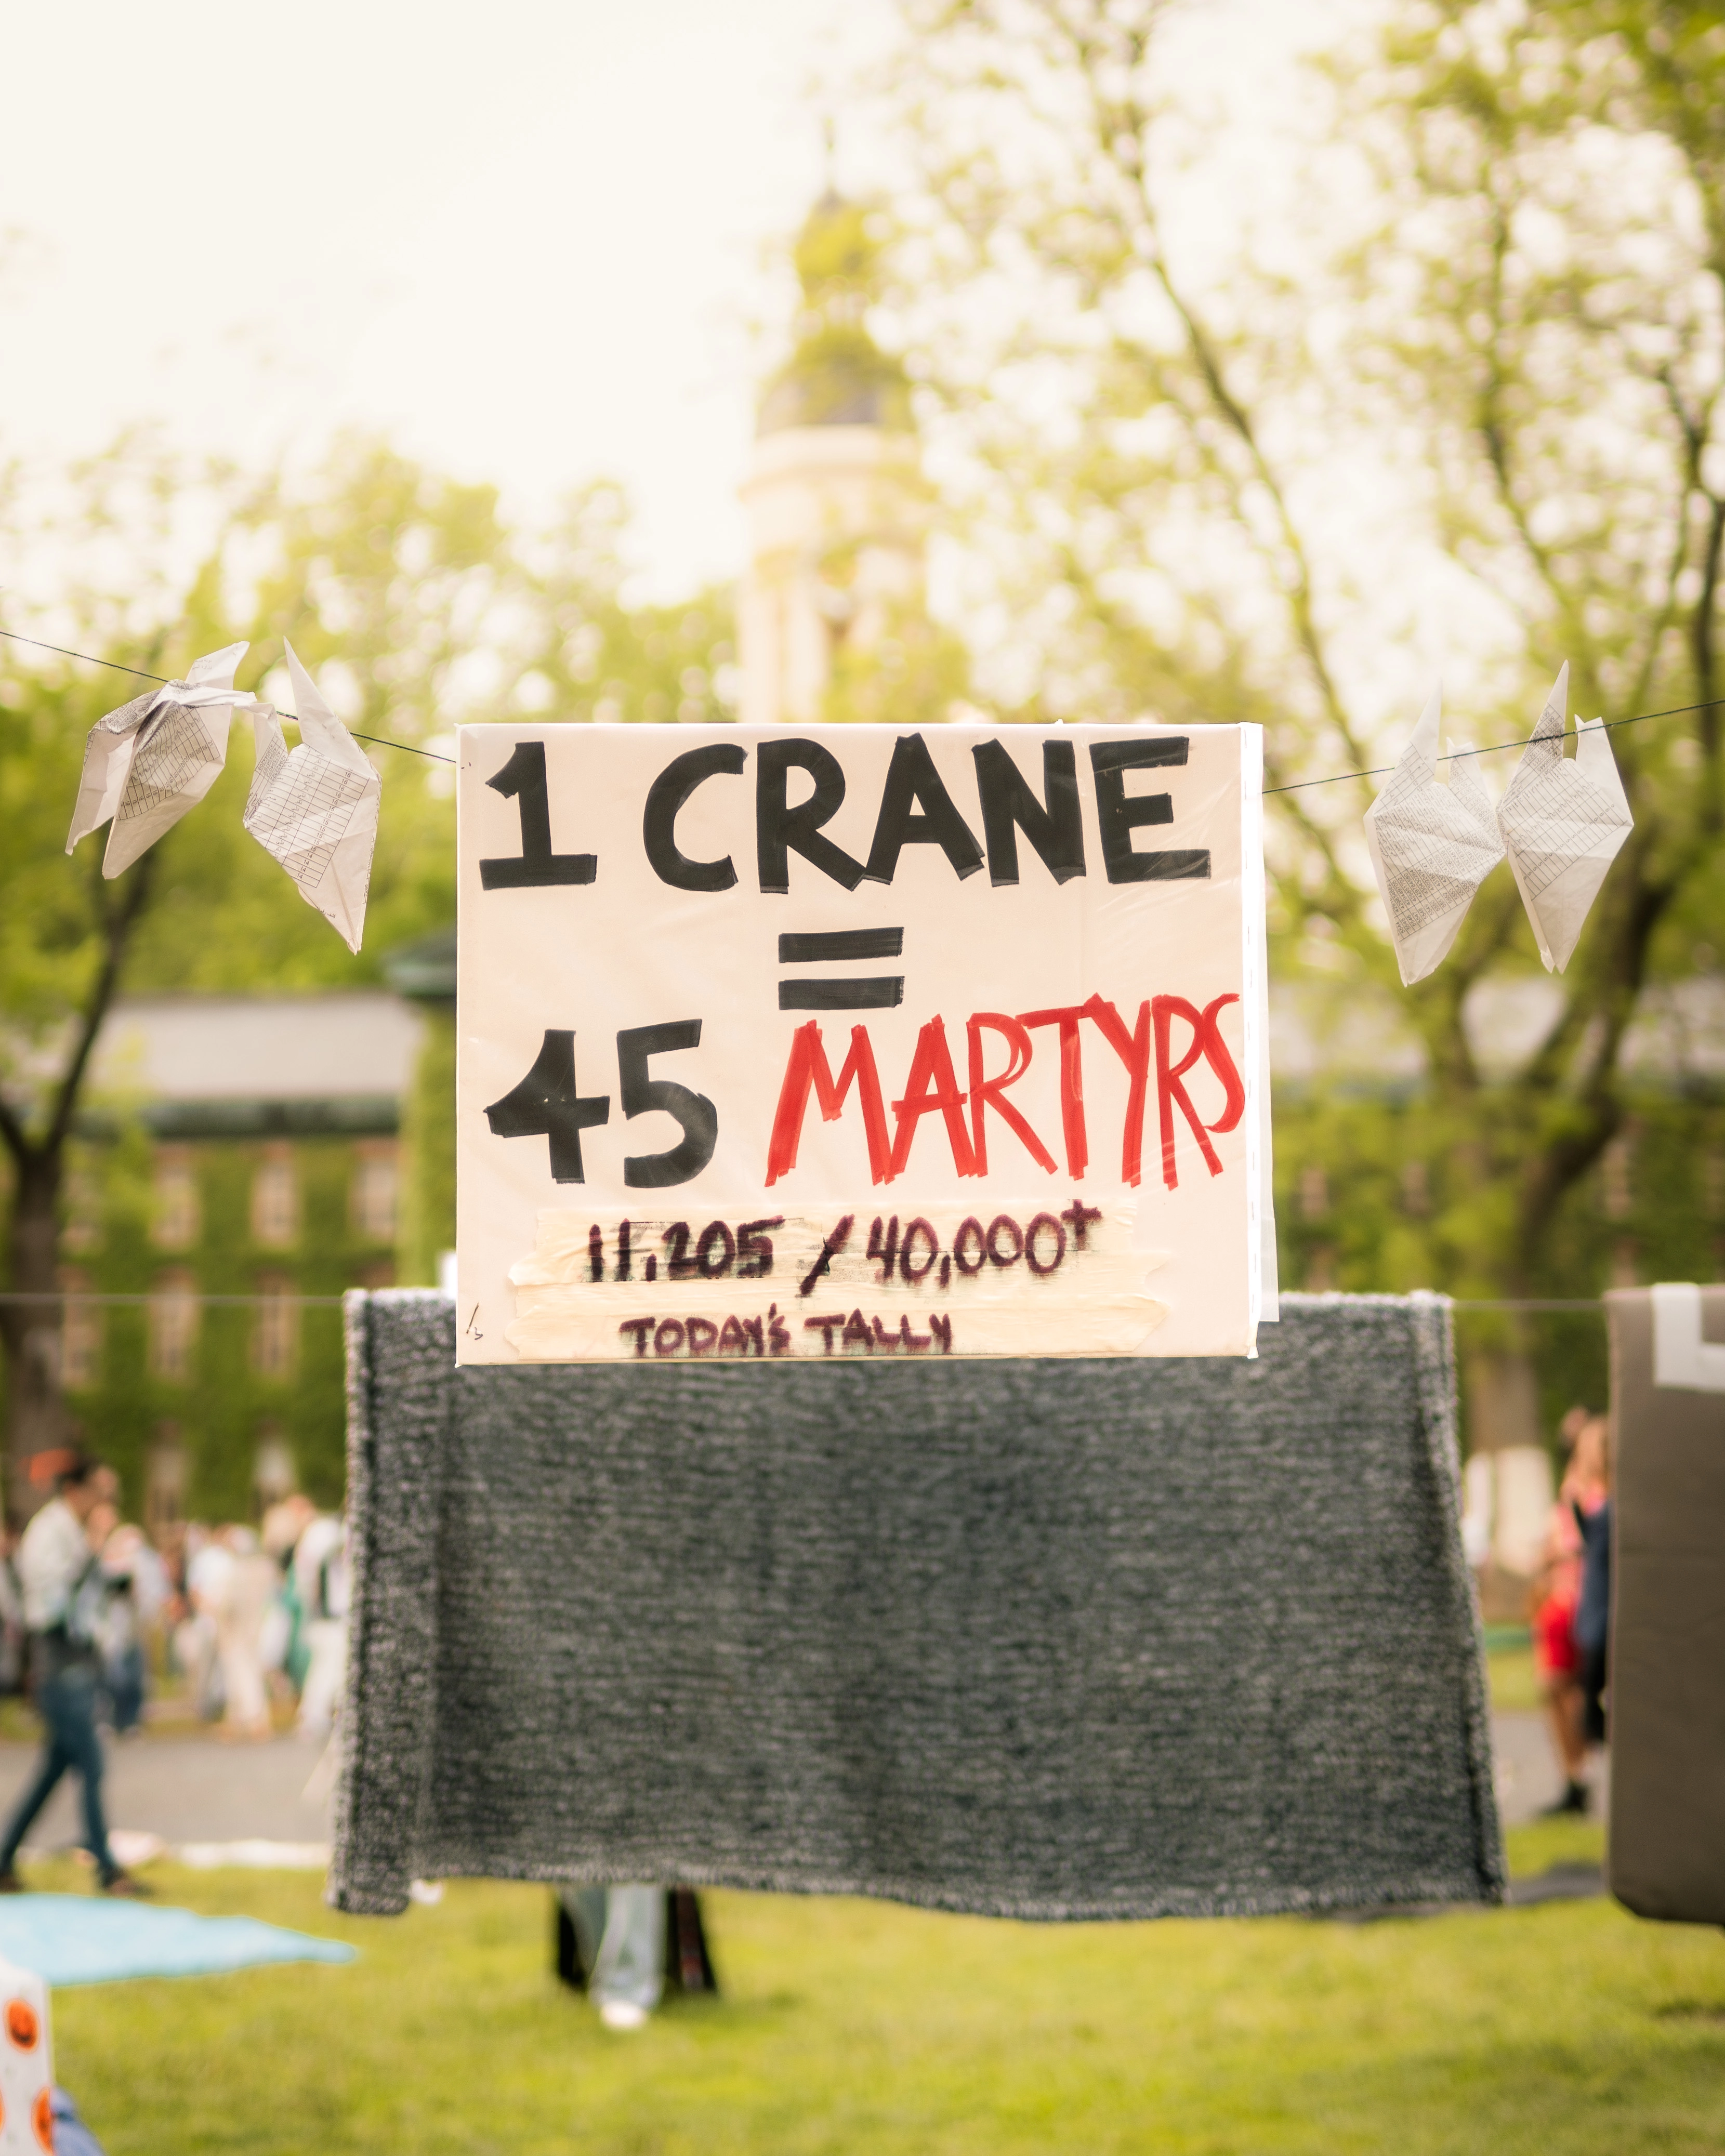 1 CRANE
=
45 MARTYRS
11,205 / 40,000+
TODAY'S TALLY